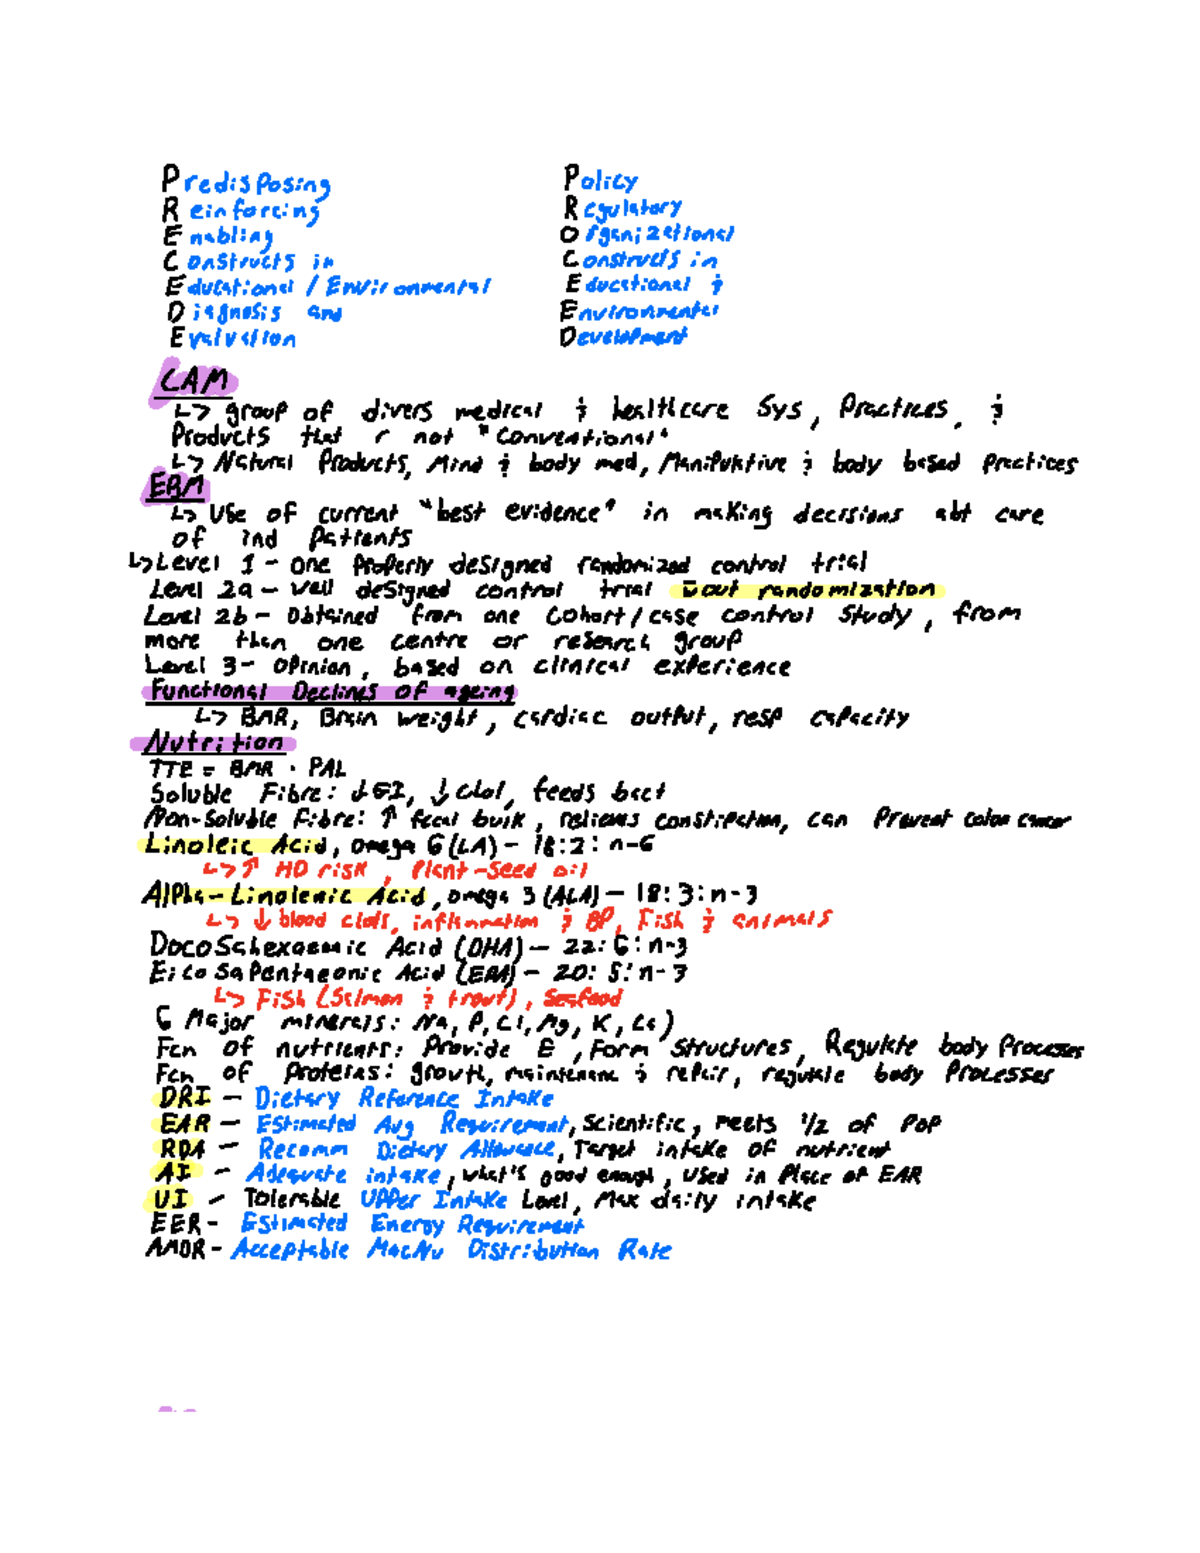 Predisposing
Reinforcing
Enabling
Constructs in
Educational / Environmental
Diagnosis and
Evaluation
Policy
Regulatory
Organizational
Constructs in
Educational &
Environmental
Development
CAM
↳ group of divers medical & healthcare Sys, Practices, &
Products that r not "Conventional"
↳ Natural Products, Mind & body med, Manipulative & body based practices
EBM
↳ Use of current "best evidence" in making decisions abt care
of ind Patients
↳ Level 1 - one properly designed randomized control trial
Level 2a - well designed control trial w̄out randomization
Level 2b - Obtained from one Cohort/case control study, from
more than one centre or research group
Level 3 - Opinion, based on clinical experience
Functional Declines of ageing
↳ BMR, Brain weight, cardiac output, resp capacity
Nutrition
TTE = BMR · PAL
Soluble Fibre: ↓GI, ↓Chol, feeds bact
Non-Soluble Fibre: ↑ fecal bulk, relieves constipation, can Prevent colon cancer
Linoleic Acid, omega 6 (LA) - 18:2: n-6
↳ ↑ HD risk, Plant-Seed oil
Alpha-Linolenic Acid, omega 3 (ALA) - 18:3: n-3
↳ ↓ blood clots, inflammation & BP, Fish & animals
Acid (DHA) - 22:6: n-3
Acid - 20:5: n-3
↳ Fish (Salmon & trout), Seafood
6 Major minerals: Na, P, Cl, Mg, K, Ca)
Fcn of nutrients: Provide E, Form Structures, Regulate body Processes
Fcn of Proteins: growth, maintenance & repair, regulate body Processes
DRI - Dietary Reference Intake
EAR - Estimated Avg Requirement, Scientific, meets 1/2 of Pop
RDA - Recomm Dietary Allowance, Target intake of nutrient
AI - Adequate intake, what's good enough, used in Place of EAR
UI - Tolerable Upper Intake Level, Max daily intake
EER - Estimated Energy Requirement
AMDR - Acceptable MacNu Distribution Rate